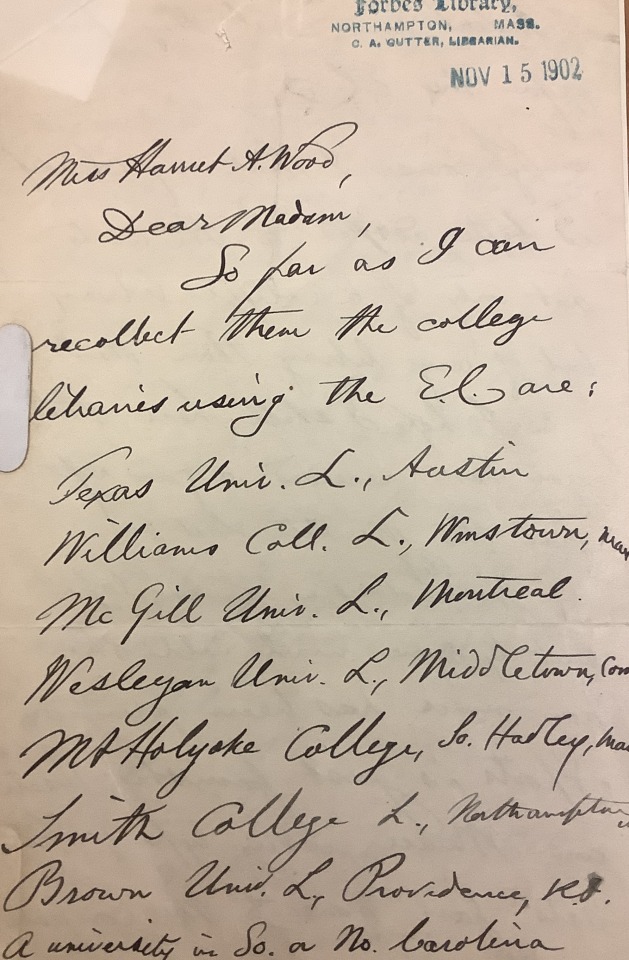 Forbes Library,
NORTHAMPTON, MASS.
C. A. CUTTER, LIBRARIAN.
NOV 15 1902
Miss Harriet A. Wood,
Dear Madam,
So far as I can
recollect them the college
libraries using the E.C. are:
Texas Univ. L., Austin
Williams Coll. L., Wmstown,
McGill Univ. L., Montreal.
Wesleyan Univ. L., Middletown, Con
Mt Holyoke College, So. Hadley, Ma
Smith College L., Northampton
Brown Univ. L., Providence, R.I.
A university in So. or No. Carolina